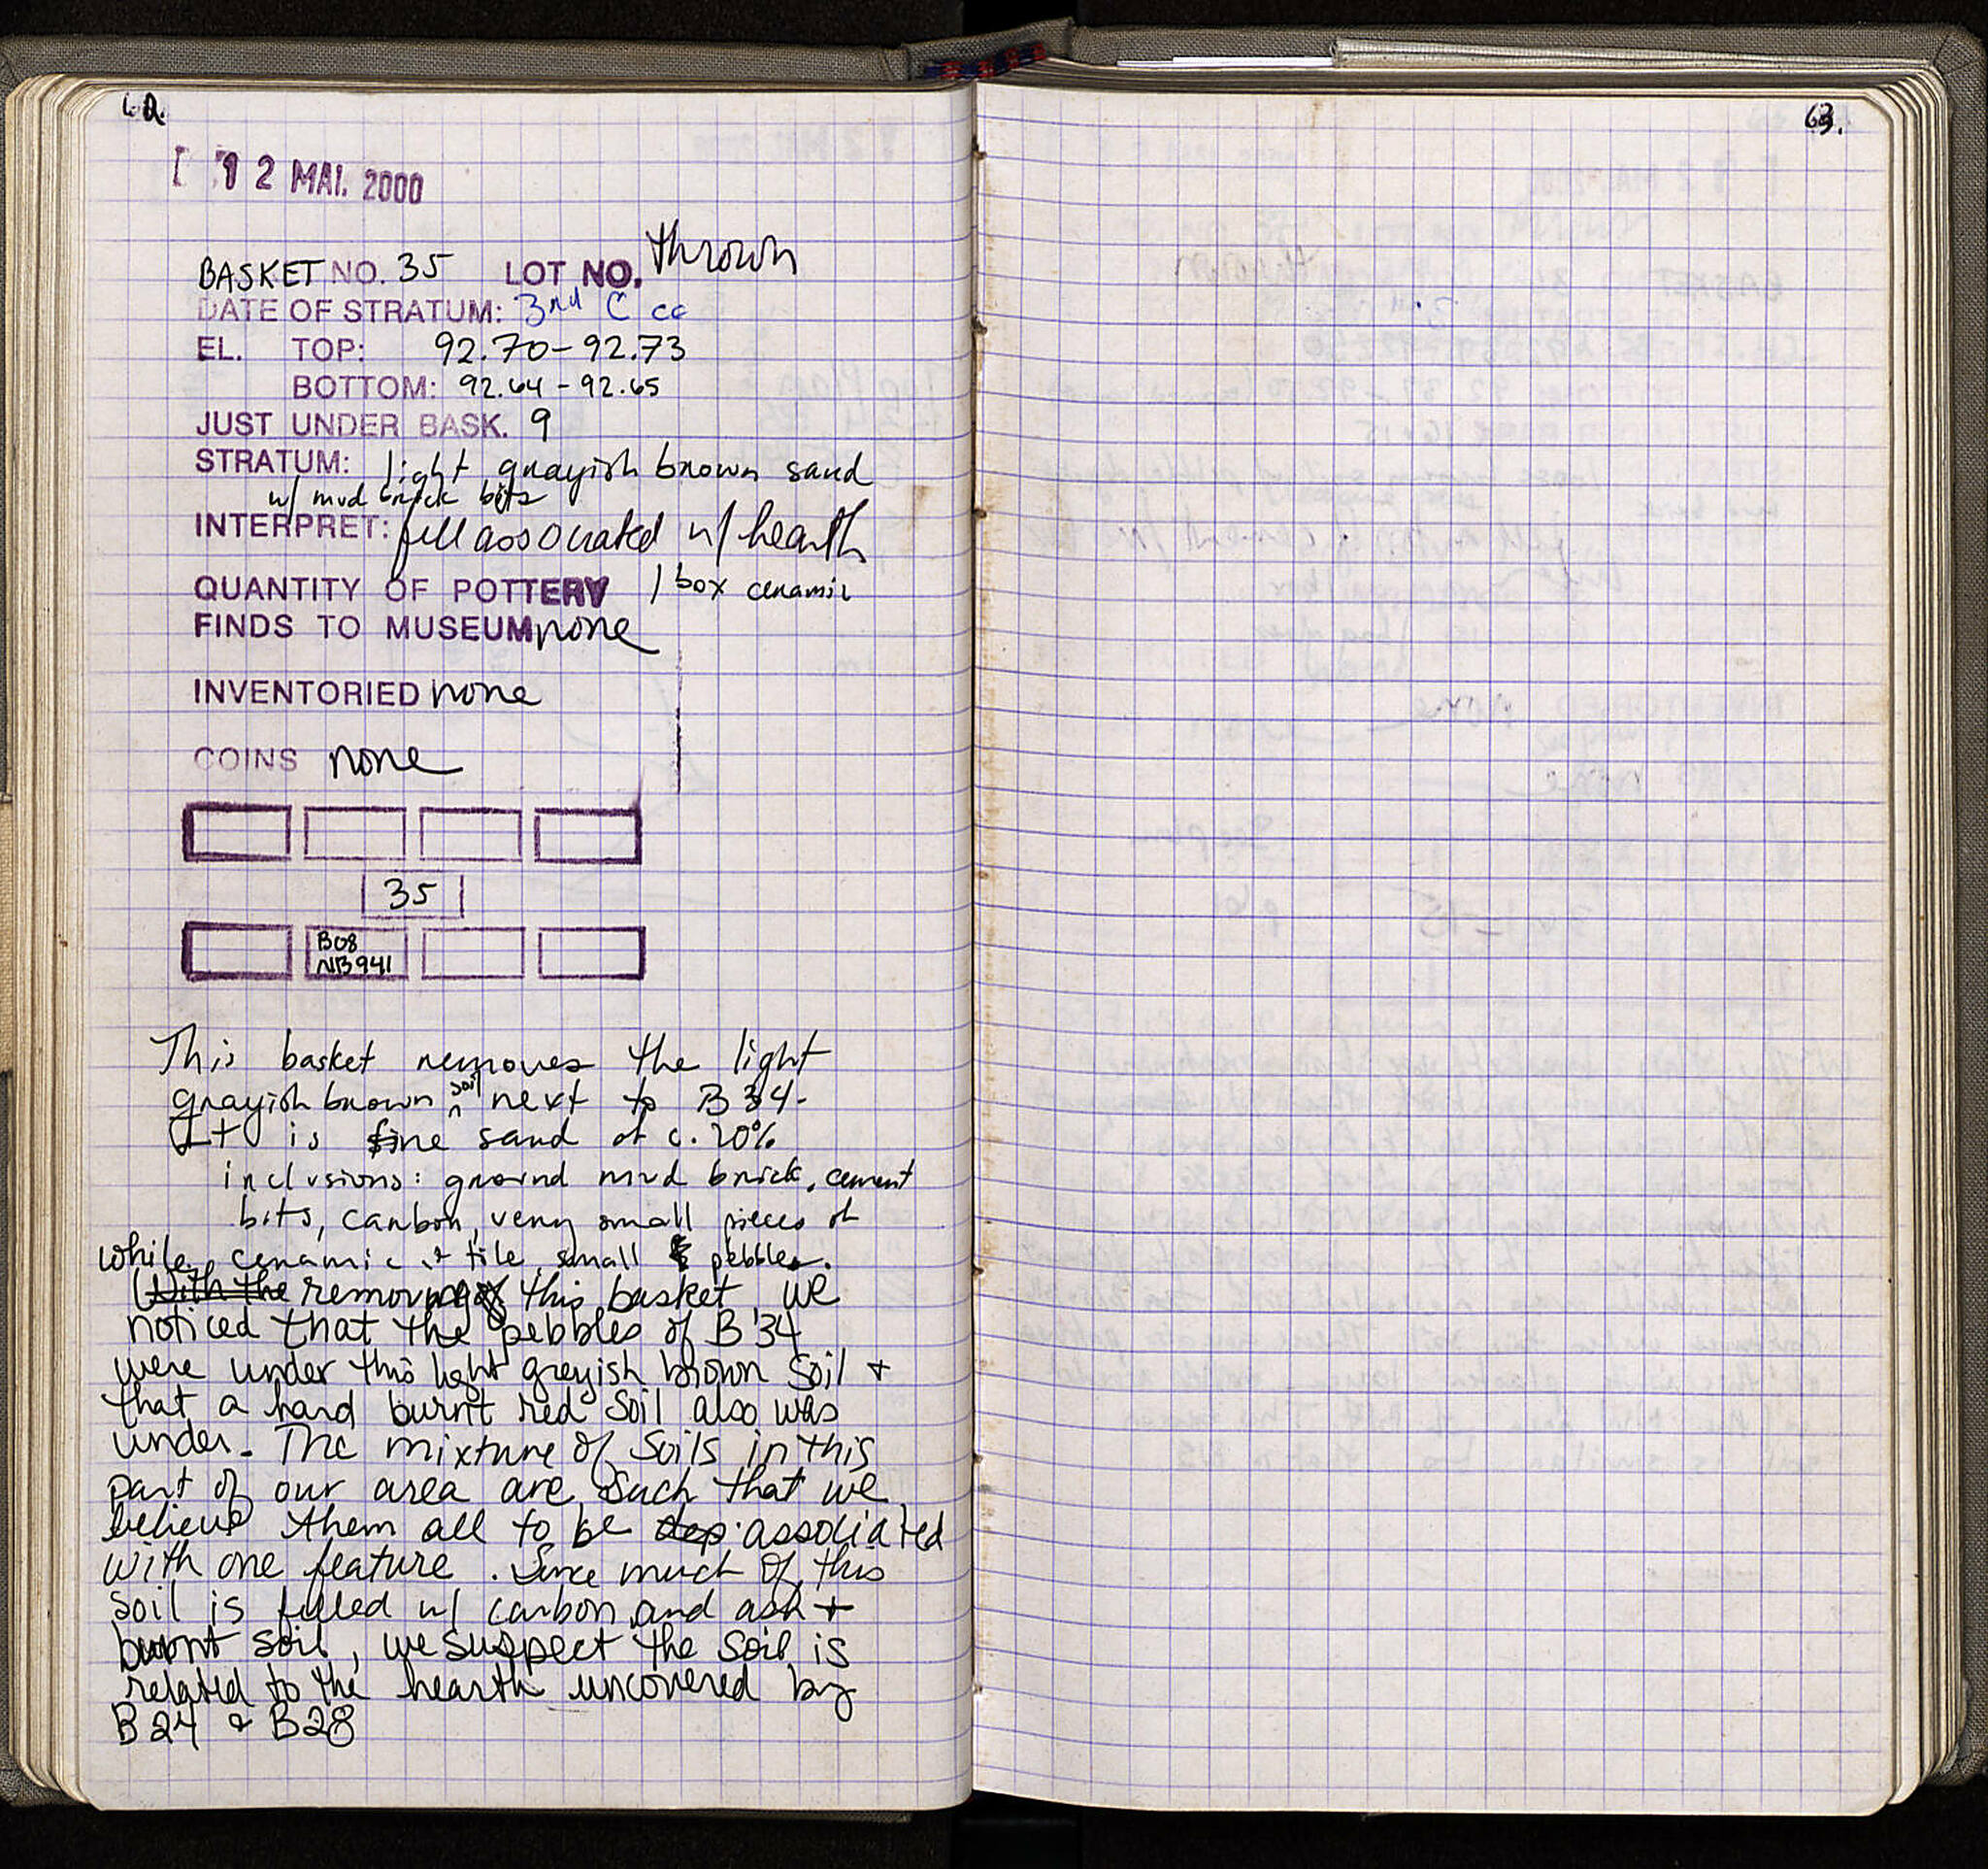 62.
12 MAI. 2000
BASKET NO. 35 LOT NO. thrown
DATE OF STRATUM: 3rd C ce
EL. TOP: 92.70-92.73
BOTTOM: 92.64-92.65
JUST UNDER BASK. 9
STRATUM: light grayish brown sand
w/ mud brick bits
INTERPRET: fill associated w/ hearth
QUANTITY OF POTTERY 1 box ceramic
FINDS TO MUSEUM none
INVENTORIED none
COINS none
35
B08
NB941
This basket removes the light
grayish brown soil next to B34.
It is fine sand of c. 20%
inclusions: ground mud brick, cement
bits, carbon, very small pieces of
while ceramic & tile, small pebbles.
With the removing of this basket, we
noticed that the pebbles of B34
were under this light greyish brown soil +
that a hard burnt red soil also was
under. The mixture of soils in this
part of our area are such that we
believe them all to be dep. associated
with one feature. Since much of this
soil is filled w/ carbon and ash +
burnt soil, we suspect the soil is
related to the hearth uncovered by
B24 & B28
63.